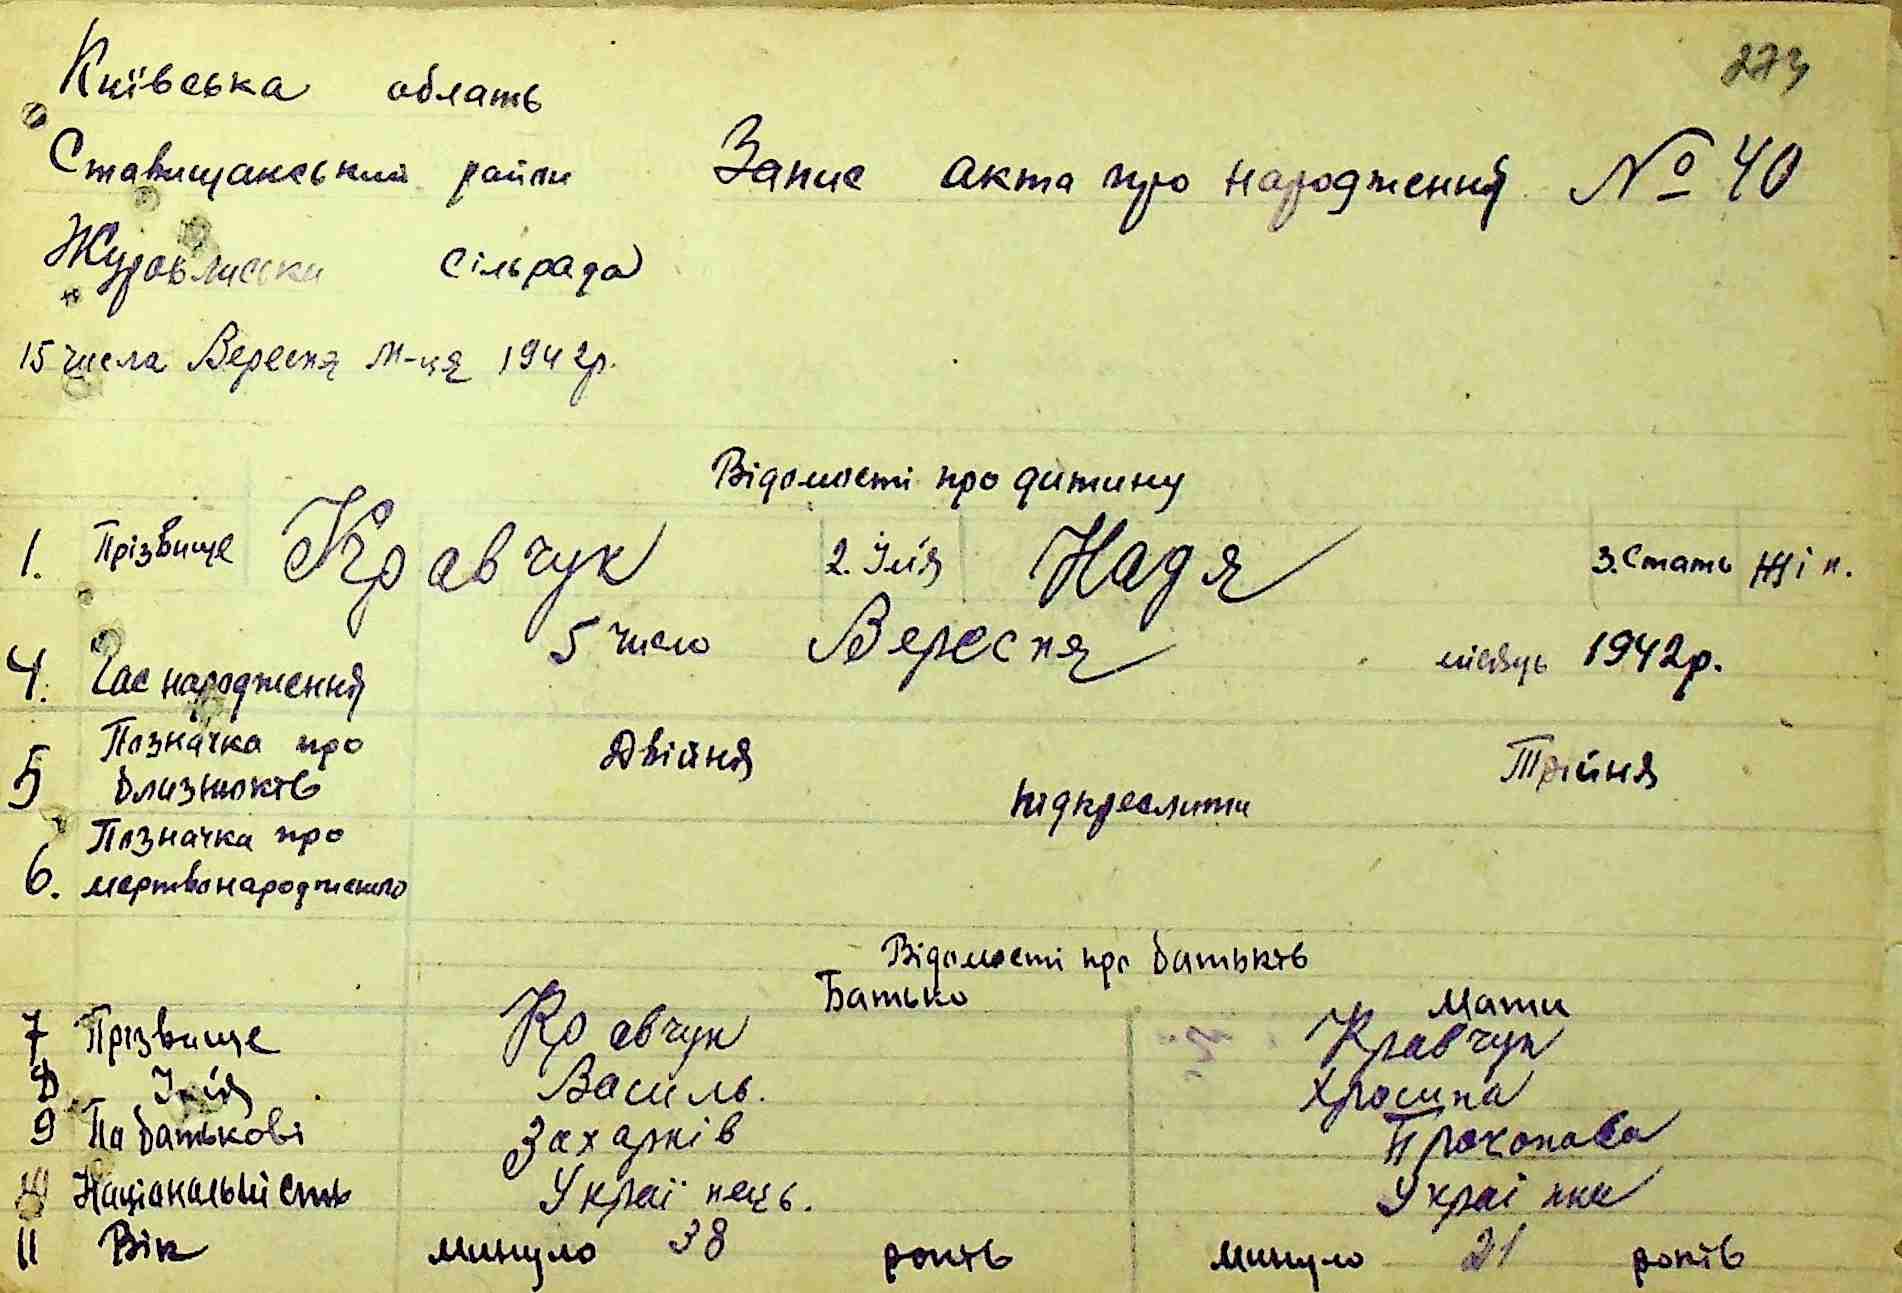 273
Київська облать
Ставищанський район Запис акта про народження № 40
сільрада
15 числа Вересня м-ця 1942р.
Відомості про дитину
1. Прізвище Кравчук 2. Ім'я Надя 3. Стать Жін.
4. Час народження 5 число Вересня місяць 1942р.
5 Позначка про близнюків Двійня підкреслити Трійня
6. Позначка про мертвонародженого
Відомості про батьків
Батько Мати
7 Прізвище Кравчук Кравчук
8 Ім'я Василь. Хросина
9 По батькові Захарків Прохопова
10 Національність Українець. Українка
11 Вік минуло 38 років минуло 21 років